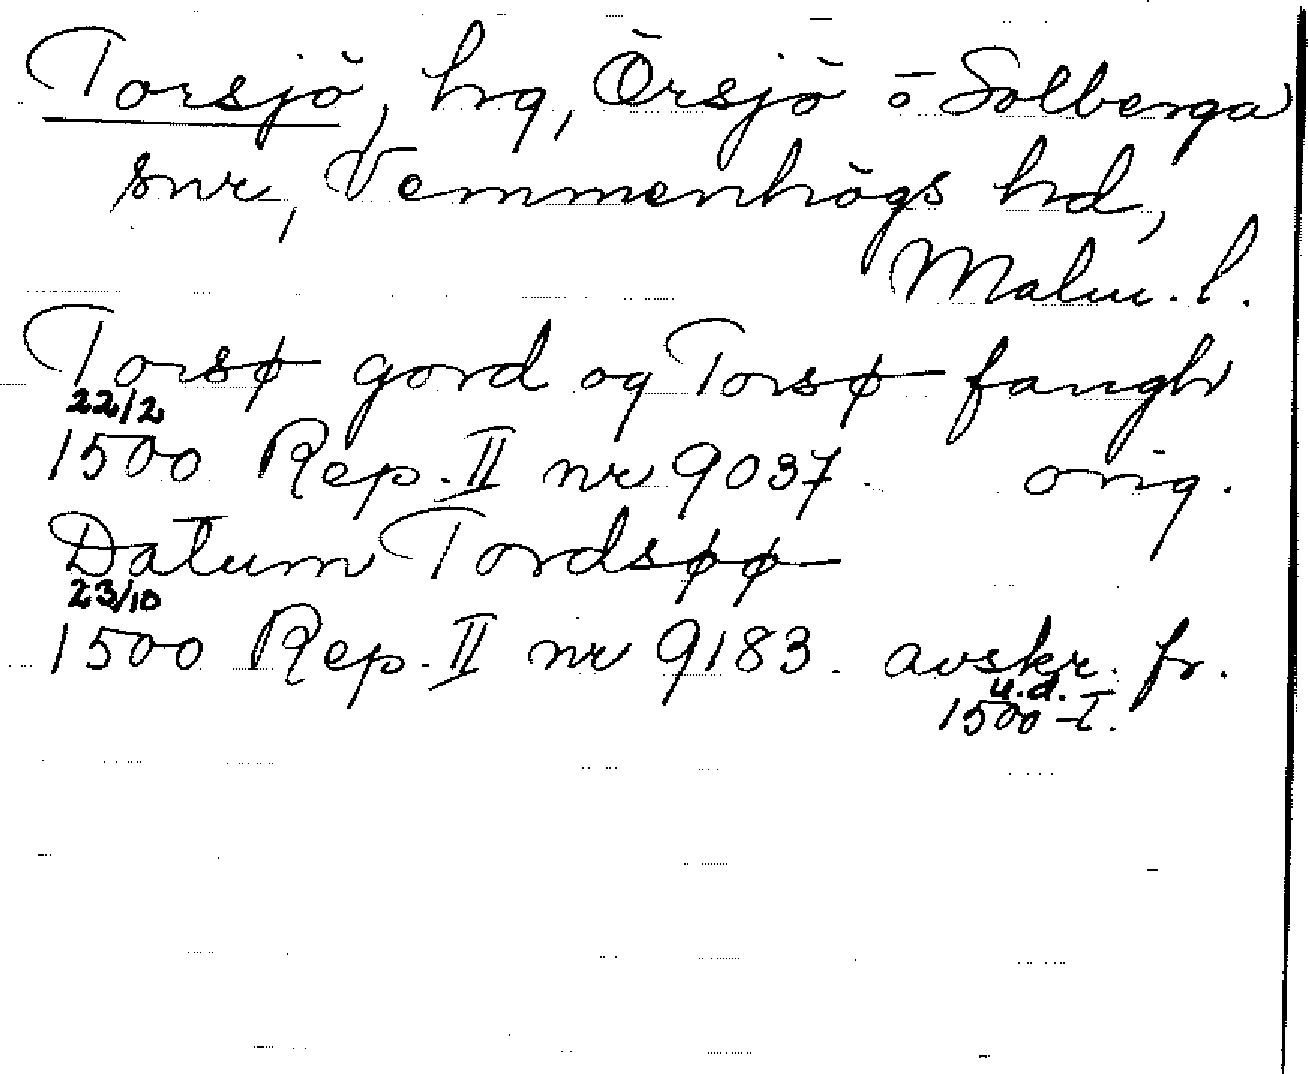 Torsjö, hrg, Örsjö o Solberga
snr, Vemmenhögs hd,
Malm. l.
Torsø gord og Torsø fangh
22/2
1500 Rep. II nr 9037. orig.
Datum Tordsøø
23/10
1500 Rep. II nr 9183. avskr. fr.
u.d.
1500-T.